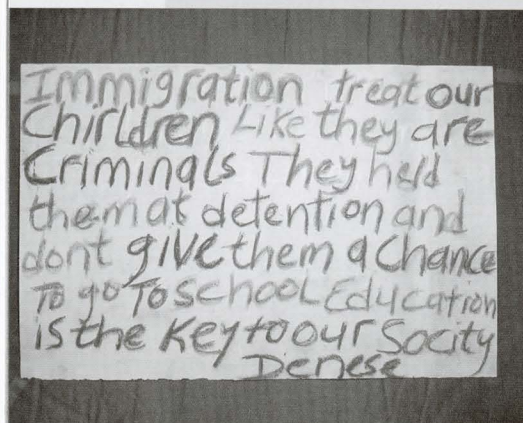 Immigration treat our
Chirldren Like they are
Criminals They held
them at detention and
dont give them a Chance
To go To School Education
is the Key to our Socity
Denese